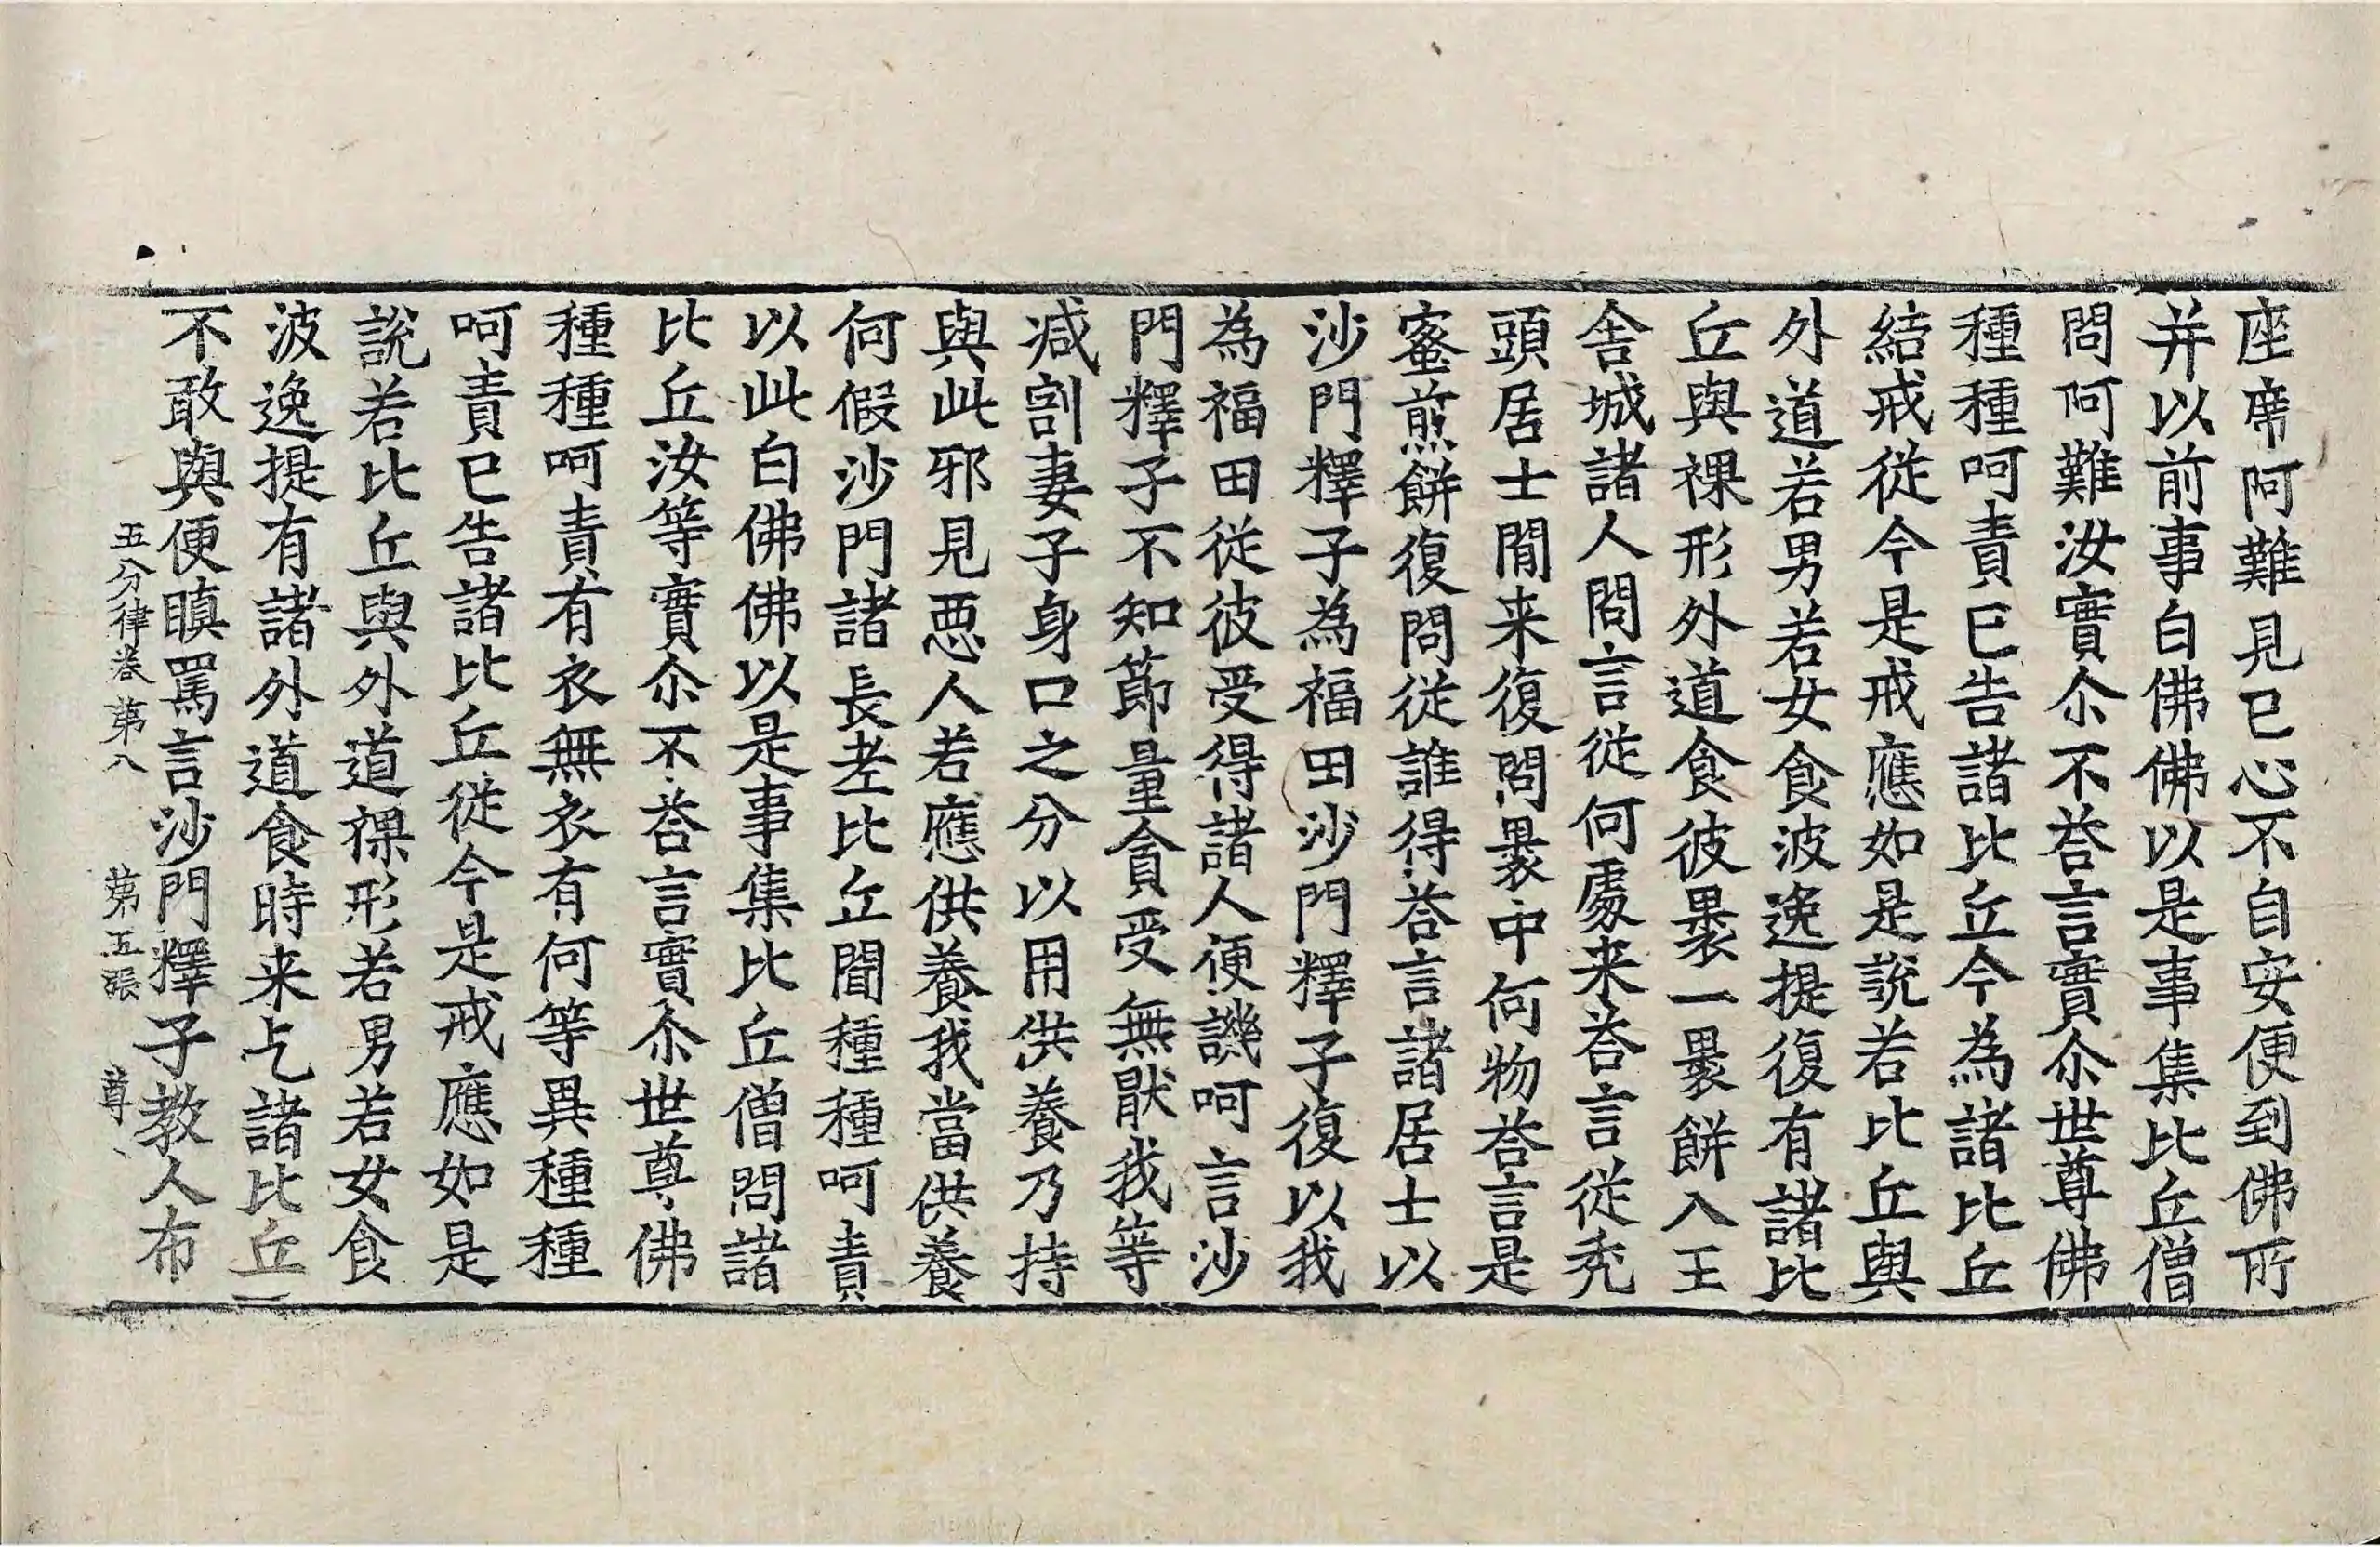 座席阿難見已心不自安便到佛所
并以前事白佛佛以是事集比丘僧
問阿難汝實尒不荅言實尒世尊佛
種種呵責已告諸比丘今為諸比丘
結戒從今是戒應如是說若比丘與
外道若男若女食波逸提復有諸比
丘與裸形外道食彼裹一裹餅入王
舎城諸人問言從何處来荅言從禿
頭居士閒来復問裹中何物荅言是
蜜煎餅復問從誰得荅言諸居士以
沙門釋子為福田沙門釋子復以我
為福田從彼受得諸人便譏呵言沙
門釋子不知節量貪受無猒我等
减割妻子身口之分以用供養乃持
與此邪見惡人若應供養我當供養
何假沙門諸長老比丘聞種種呵責
以此白佛佛以是事集比丘僧問諸
比丘汝等實尒不荅言實尒世尊佛
種種呵責有衣無衣有何等異種種
呵責已告諸比丘從今是戒應如是
說若比丘與外道裸形若男若女食
波逸提有諸外道食時来乞諸比丘
不敢與便瞋罵言沙門釋子教人布
五分律卷第八 第五張 尊